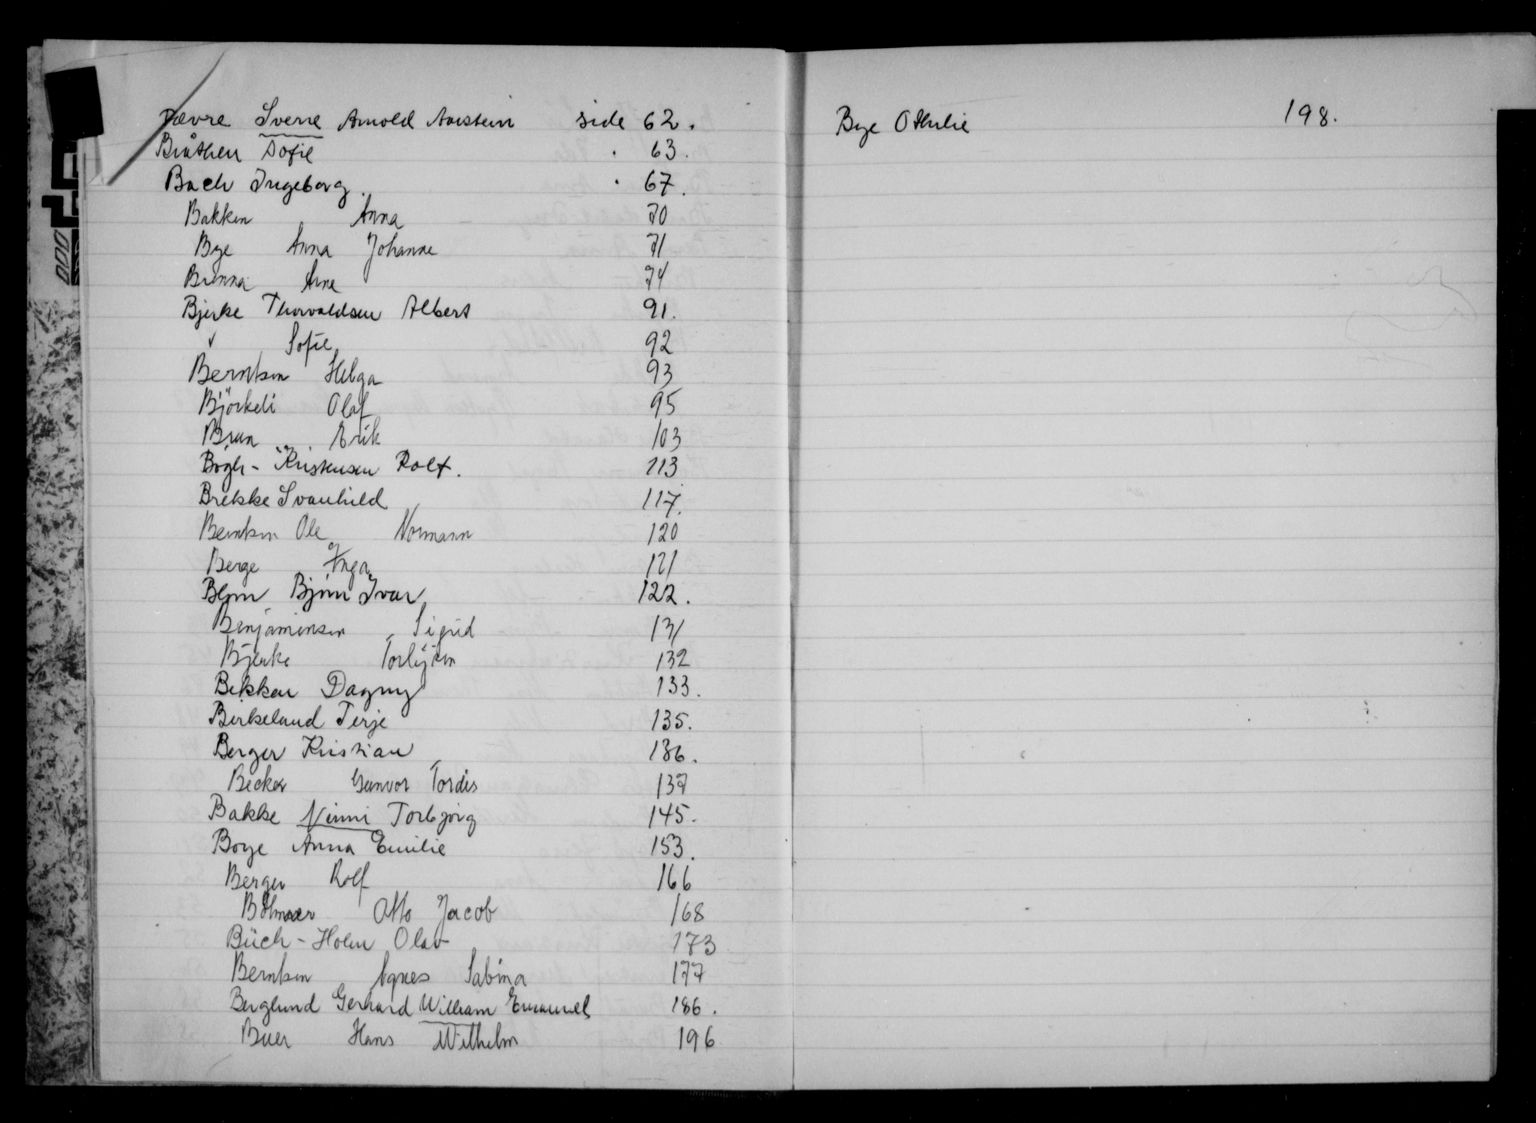 Bævre Sverre Arnold Aarstein side 62.
Bråthen Sofie . 63.
Bach Ingeborg . 67.
Bakken Anna 70
Bye Anna Johanne 71
Brenna Arne 74
Bjerke Thorvaldsen Albert 91.
" Sofie 92
Berntsen Helga 93
Björkeli Olaf 95
Brun Erik 103
Bøgh-Kristensen Rolf. 113
Brekke Svanhild 117.
Berntsen Ole Normann 120
Berge Inga 121
Blom Bjørn Ivar 122.
Benjaminsen Sigrid 131
Bjerke Torbjörn 132
Bekken Dagny 133.
Birkeland Terje 135.
Berger Kristian 136.
Becker Gunvor Tordis 137
Bakke Ninni Torbjørg 145.
Borge Anna Emilie 153.
Berger Rolf 166
Böhmer Otto Jacob 168
Büch-Holm Olav 173
Berntsen Agnes Sabina 177
Berglund Gerhard William Emanuel 186.
Buer Hans Wilhelm 196
Bye Othilie 198.